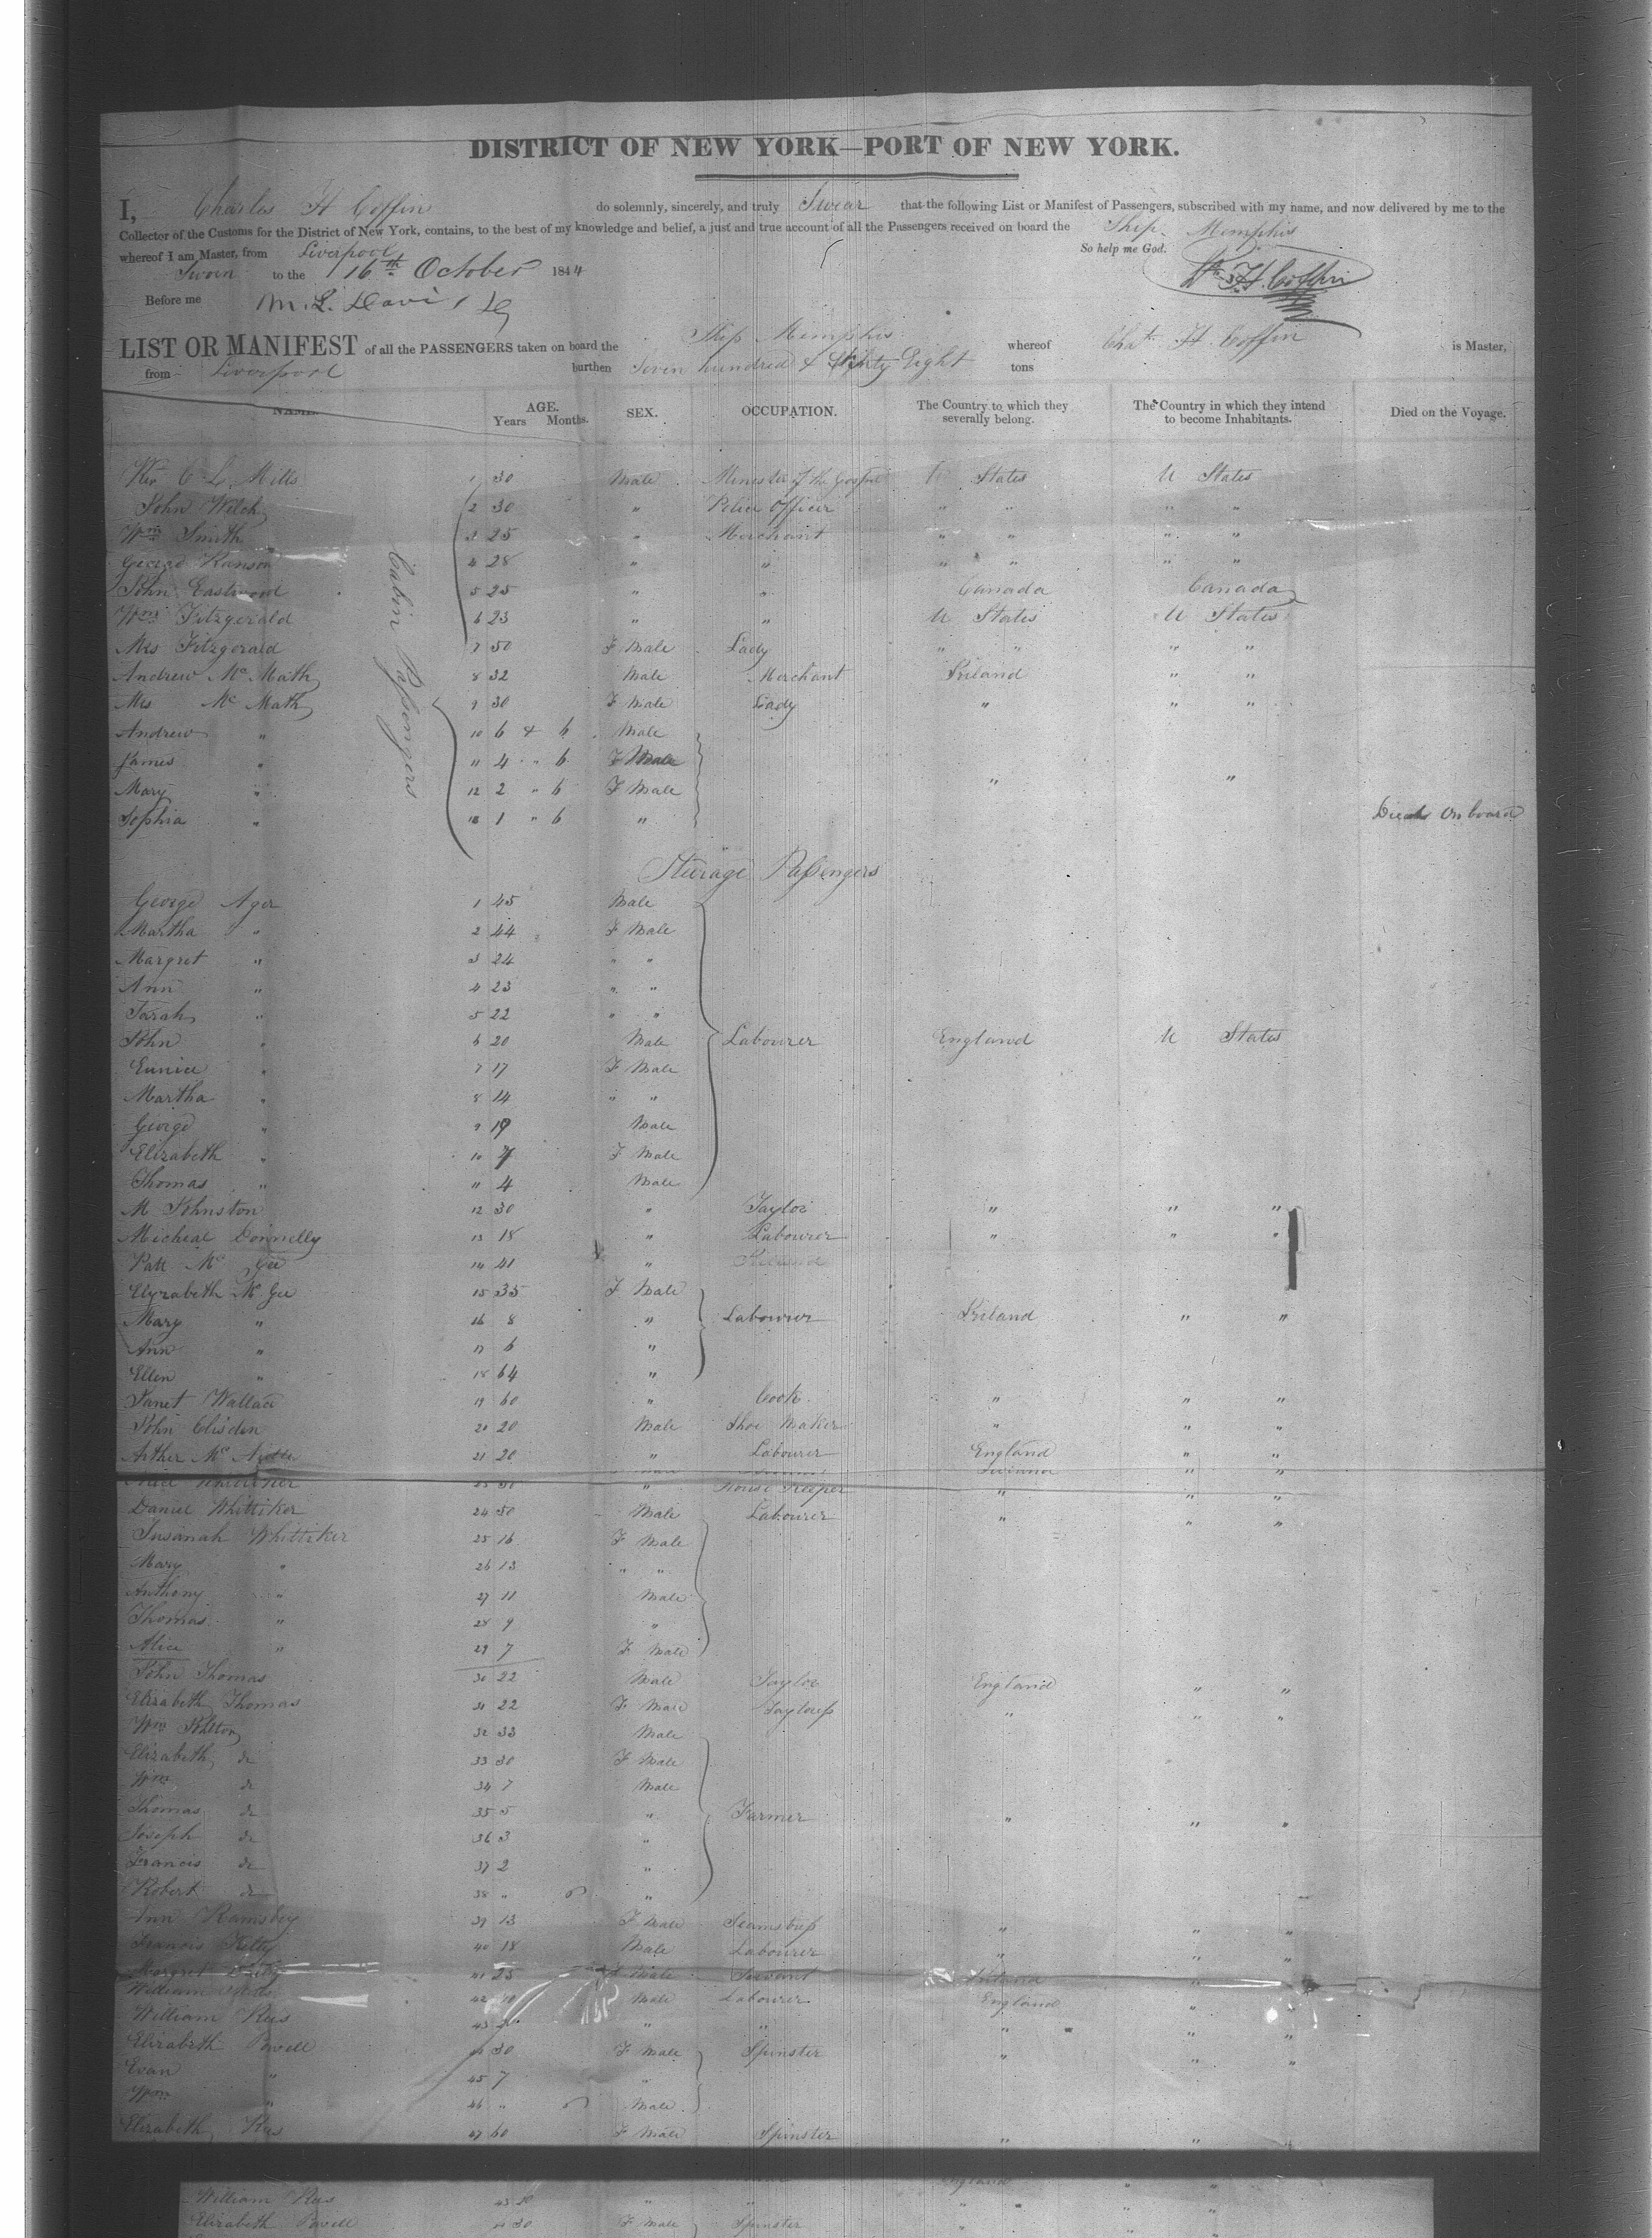 DISTRICT OF NEW YORK—PORT OF NEW YORK.
I, Charles H Coffin do solemnly, sincerely, and truly Swear that the following List or Manifest of Passengers, subscribed with my name, and now delivered by me to the
Collector of the Customs for the District of New York, contains, to the best of my knowledge and belief, a just and true account of all the Passengers received on board the Ship Memphis
whereof I am Master, from Liverpool So help me God.
Sworn to the 16th October 1844 H. Coffin
Before me M. L. Davis
LIST OR MANIFEST of all the PASSENGERS taken on board the Ship Memphis whereof Chas H Coffin is Master,
from Liverpool burthen Seven hundred & Eight tons
NAME. AGE. Years Months. SEX. OCCUPATION. The Country to which they severally belong. The Country in which they intend to become Inhabitants. Died on the Voyage.
Cabin Passengers
Rev C L Mills 1 30 Male Minister of the Gospel U States U States
John Welch 2 30 " Police Officer " " " "
Wm Smith 3 25 " Merchant " " " "
George Ranson 4 28 " " " " " "
John Eastwood 5 25 " " Canada Canada
Wm Fitzgerald 6 23 " " U States U States
Mrs Fitzgerald 7 50 F Male Lady " " " "
Andrew Mc Math 8 32 Male Merchant Ireland " "
Mrs Mc Math 9 30 F Male Lady " " "
Andrew " 10 6 & 6 Male
James " 11 4 " 6 F Male
Mary " 12 2 " 6 F Male " "
Sophia " 13 1 " 6 " Died On board
Steerage Passengers
George Ager 1 45 Male
Martha " 2 44 F Male
Margret " 3 24 " "
Ann " 4 23 " "
Sarah " 5 22 " "
John " 6 20 Male Labourer England U States
Eunice " 7 17 F Male
Martha " 8 14 " "
George " 9 19 Male
Elizabeth " 10 7 F Male
Thomas " 11 4 Male
M Johnston 12 30 " Taylor " " "
Micheal Donnelly 13 18 " Labourer " " "
Patt Mc Gee 14 41 " Ireland
Elyzabeth Mc Gee 15 35 F Male
Mary " 16 8 " Labourer Ireland " "
Ann " 17 6 "
Ellen " 18 64 "
Janet Wallace 19 60 " Cook " " "
John Clisden 20 20 Male Shoe Maker " " "
Arther Mc 21 20 " Labourer England " "
" House Keeper " " "
Daniel Whittiker 24 50 Male Labourer " " "
Susanah Whittiker 25 16 F Male
Mary " 26 13 " "
Anthony " 27 11 Male
Thomas " 28 9 "
Alice " 29 7 F Male
John Thomas 30 22 Male Taylor England " "
Elizabeth Thomas 31 22 F Male Tayloress " " "
Wm 32 33 Male
Elizabeth do 33 30 F Male
Wm do 34 7 Male
Thomas do 35 5 " Farmer " " "
Joseph do 36 3 "
Francis do 37 2 "
Robert do 38 " 6 "
Ann Ramsbey 39 13 F Male Seamstress " " "
Francis Kelly 40 18 Male Labourer " " "
Margret 41 25 F Male Servant Ireland "
William 42 Male Labourer England "
William Rees 43 " " " " "
Elizabeth Powell 44 30 F Male Spinster " " "
Evan " 45 7 "
Wm " 46 " 6 Male
Elizabeth Rees 47 60 F Male Spinster " " "
England
William Rees 43 20 " " " "
Elizabeth Powell 44 30 F Male Spinster " " "